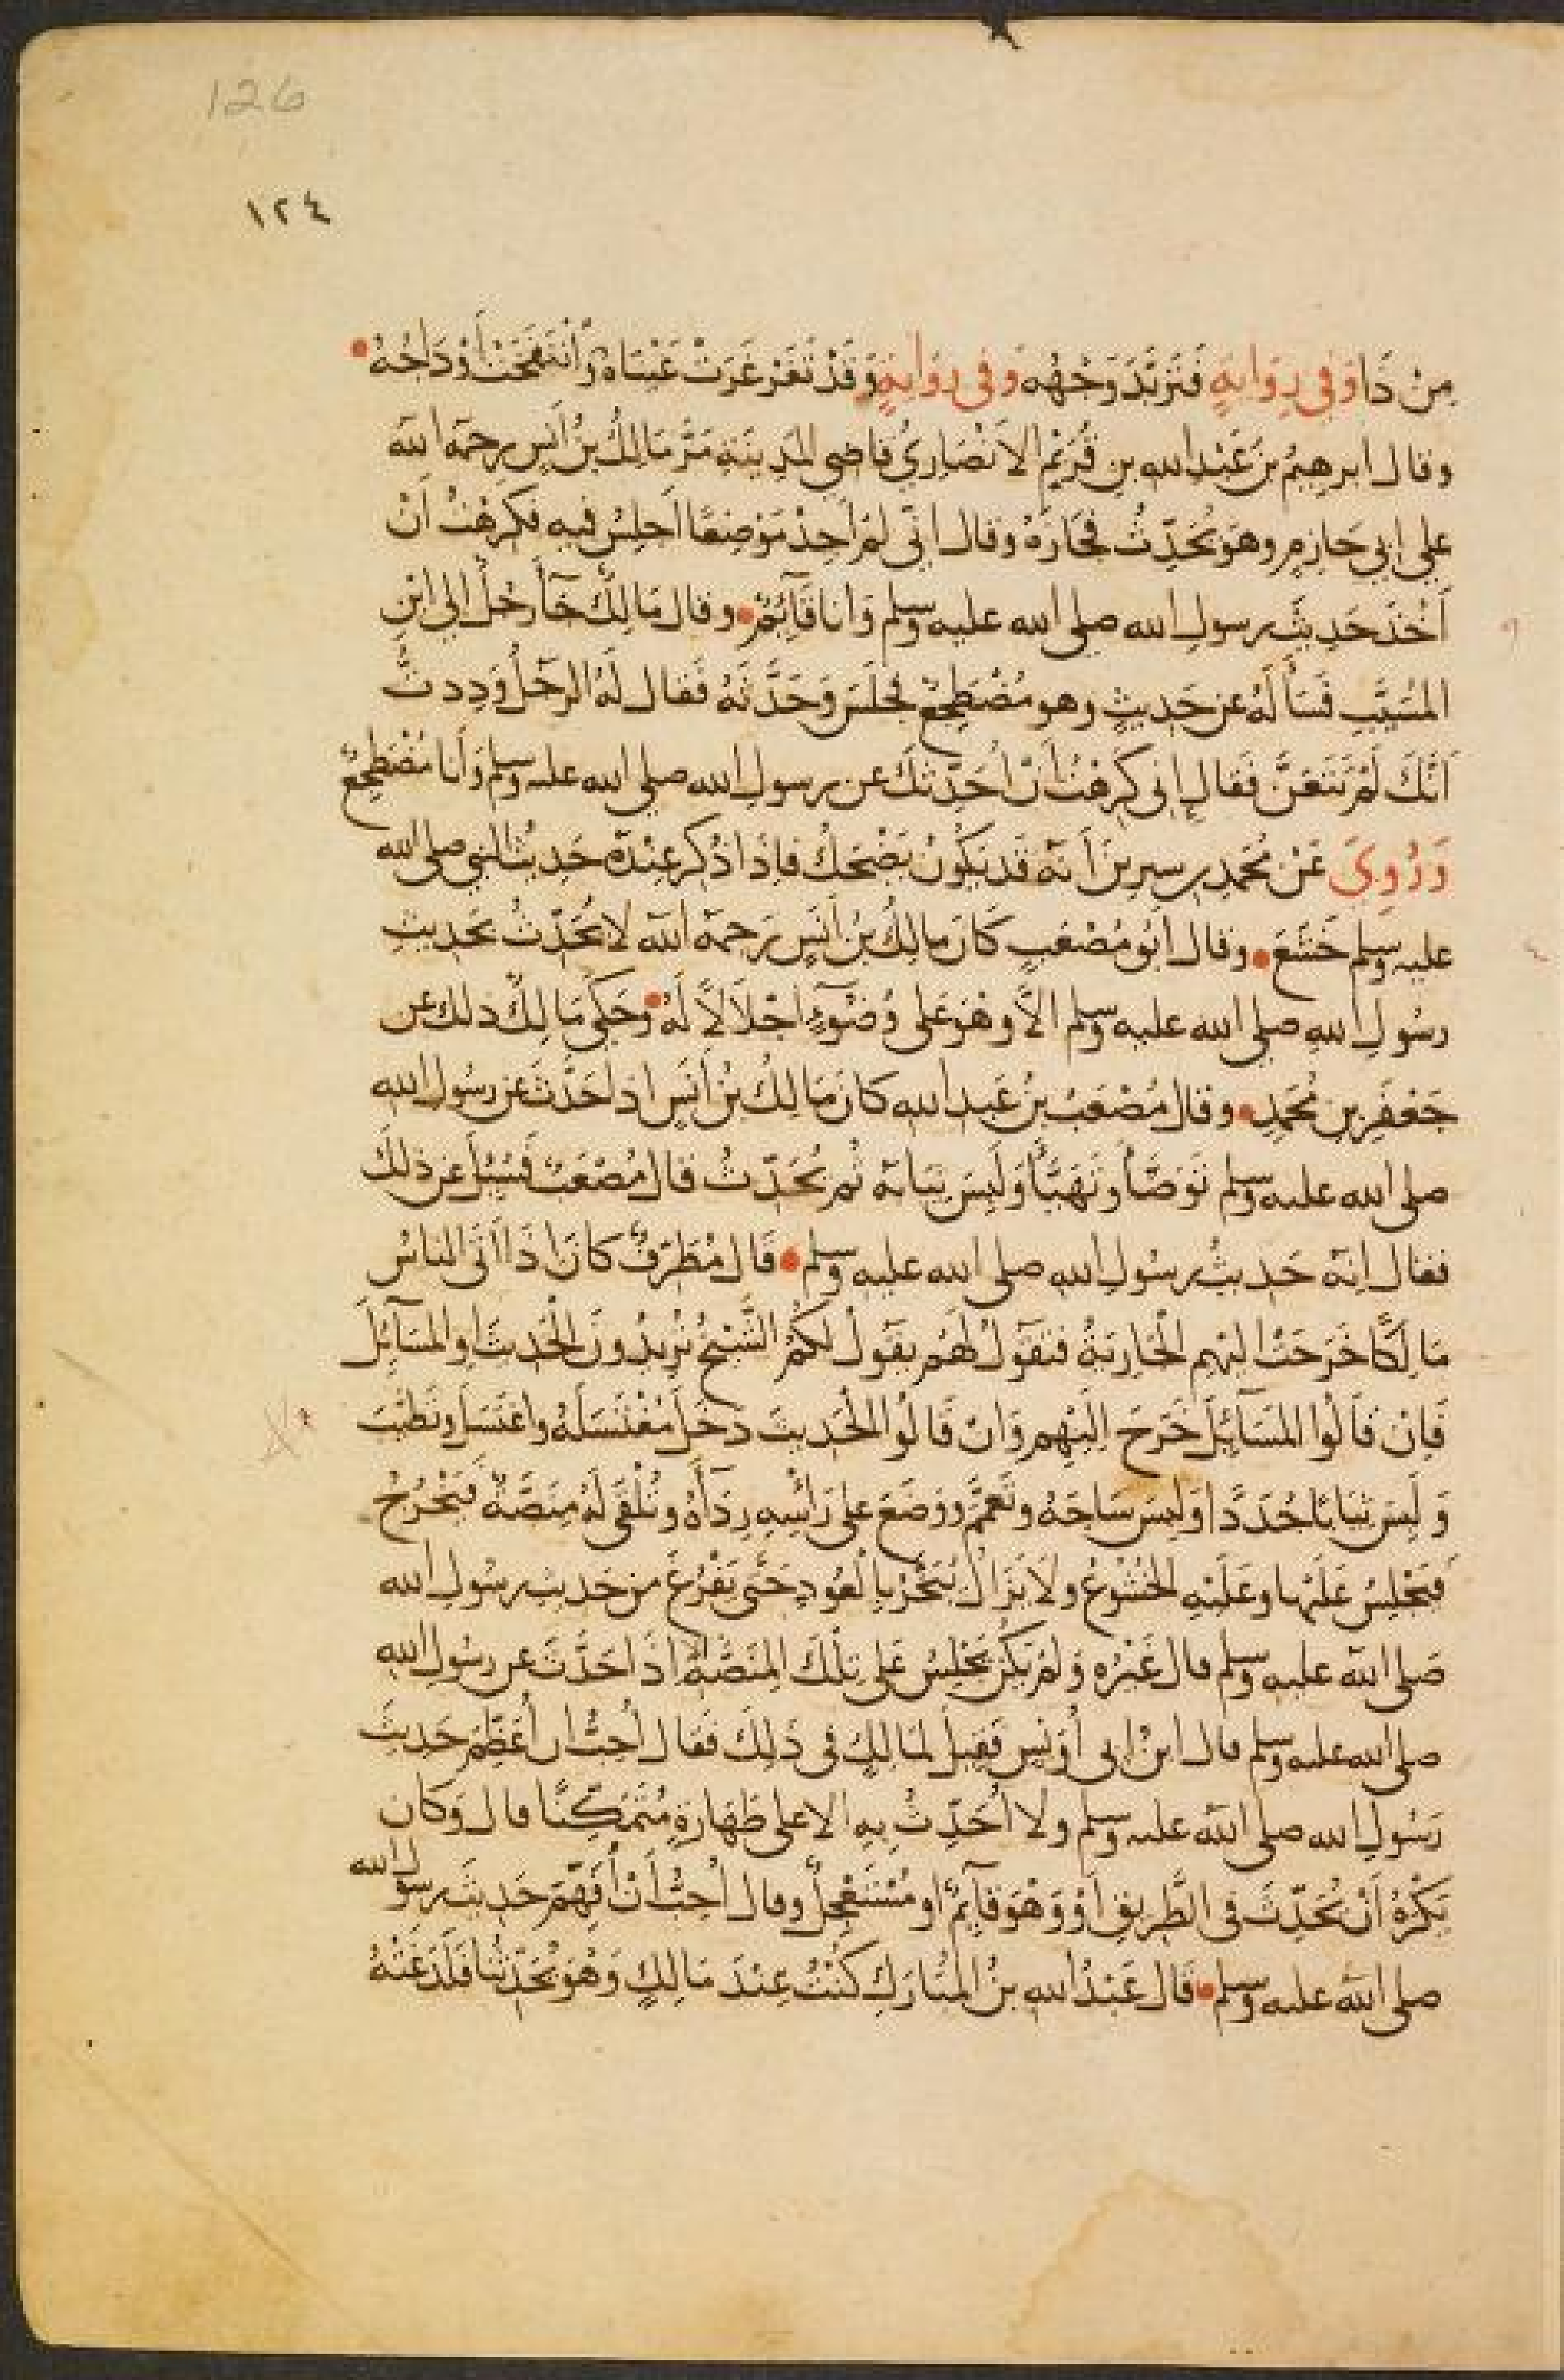 126
١٢٤
مِنْ ذَا وَفي رِوَايةٍ فَتَرَبَّدَ وَجْهُه وَفي رِوَايةٍ وَقَدْ تَغَرْغَرَتْ عَيْنَاهُ وَانْتَفَخَتْ أَوْدَاجُهُ
وقال ابرهيمُ بنُ عَبْدِ الله بنِ قُرَيْمٍ الاَنْصَارِيُّ قاضِي المَدِينَةِ مَرَّ مَالِكُ بنُ أَنَسٍ رحمَهُ الله
على ابي حَازِمٍ وهوَ يُحَدِّثُ فجَازَهُ وقال انّي لمْ اَجِدْ مَوْضِعًا اَجلِسُ فيه فكَرِهْتُ اَنْ
آخُذَ حَدِيثَ رسولِ الله صلى الله عليه وسلم وَانا قَآئِمٌ وقال مَالِكٌ جَآ رَجُلٌ إلى ابْنِ
المُسَيَّبِ فَسَأَلَهُ عن حَدِيثٍ وهو مُضْطَجِعٌ فجَلَسَ وَحَدَّثَهُ فقال لَهُ الرَّجُلُ وَدِدتُّ
اَنَّكَ لَمْ تَتَعَنَّ فَقال إني كَرِهْتُ اَنْ اُحَدِّثَكَ عن رسولِ الله صلى الله عليه وسلم وَأَنا مُضْطَجِعٌ
وَرُوِيَ عَنْ مُحَمَّدِ بنِ سيرينَ اَنَّهُ قَد يَكُونُ يَضْحَكُ فاِذَا ذُكِرَ عِنْدَهُ حَدِيثُ النبي صلى الله
عليه وسلم خَشَعَ وقال اَبُو مُصْعَبٍ كَانَ مالِكُ بنُ اَنَسٍ رَحمَهُ الله لا يُحَدِّثُ بحَدِيثِ
رسُولِ اللهِ صلى الله عليه وسلم الاَّ وهْوَ على وُضُوءٍ اجْلاَلاً لَهُ وحَكَى مَالِكٌ ذلك عن
جَعْفَرِ بنِ مُحَمَّدٍ وقال مُصْعَبُ بنُ عَبدِ الله كانَ مَالِكُ بْنُ أَنَسٍ اذا حَدَّثَ عن رسُولِ الله
صلى الله عليه وسلم تَوَضَّأَ وتَهَيَّأَ وَلَبِسَ ثِيَابَهُ ثم يُحَدِّثُ قال مُصْعَبٌ فَسُئِلَ عن ذلكَ
فقال اِنهُ حَدِيثُ رسُولِ الله صلى الله عليه وسلم قَال مُطَرّفٌ كانَ اذَا اَتَى النَاسُ
مَالِكًا خَرَجَتْ اليْهِم الْجَارِيَةُ فتَقُولُ لَهُم يقُولُ لكُمُ الشَّيْخُ تُرِيدُونَ الْحَدِيثَ اوِ المسَآئِلَ
فَاِنْ قَالُوا المَسَآئِلَ خَرَجَ اِلَيْهِم وَاِنْ قَالُوا الْحَدِيثَ دخَلَ مُغْتَسَلَهُ واغتَسَلَ وتَطَيَّبَ
وَلَبِسَ ثِيَابًا جُدَدًا وَلبِسَ سَاجَهُ وتَعَمَّمَ ووَضَعَ على رَأْسِهِ رِدَآءَهُ وتُلْقَى لَهُ مِنَصَّةٌ فَيَخْرُجُ
فيَجْلِسُ عَلَيْها وعَلَيْهِ الخُشُوعُ ولاَ يَزَالُ يُبَخَّرُ بِالْعُودِ حَتَّى يَفْرُغَ من حَديثِ رسُولِ الله
صَلى الله عليه وسلم قال غَيْرُه وَلمْ يَكُنْ يَجْلِسُ عَلى تِلْكَ المِنَصَّةِ الاَّ اذَا حَدَّثَ عن رسُولِ الله
صلى الله عليه وسلم قال ابنُ ابى أُوَيسٍ فَقِيلَ لمَالِكٍ في ذَلِكَ فَقَال اُحِبُّ ان أُعَظِّمَ حَديثَ
رَسُولِ الله صلى الله عليه وسلم ولا اُحَدِّثُ بِهِ الا على طَهَارَةٍ مُتَمَكِّنًا قال وَكان
يَكْرَهُ اَنْ يُحَدِّثَ في الطَّرِيقِ اَوْ وَهْوَ قآئِمٌ او مُسْتَعْجِلٌ وقال اُحِبُّ اَنْ أُفَهِّمَ حَدِيثَ رسولِ الله
صلى الله عليه وسلم قَال عَبْدُ الله بنُ المُبَارَكِ كُنْتُ عِنْدَ مَالِكٍ وَهْوَ يُحَدِّثُنَا فَلَدَغَتْهُ